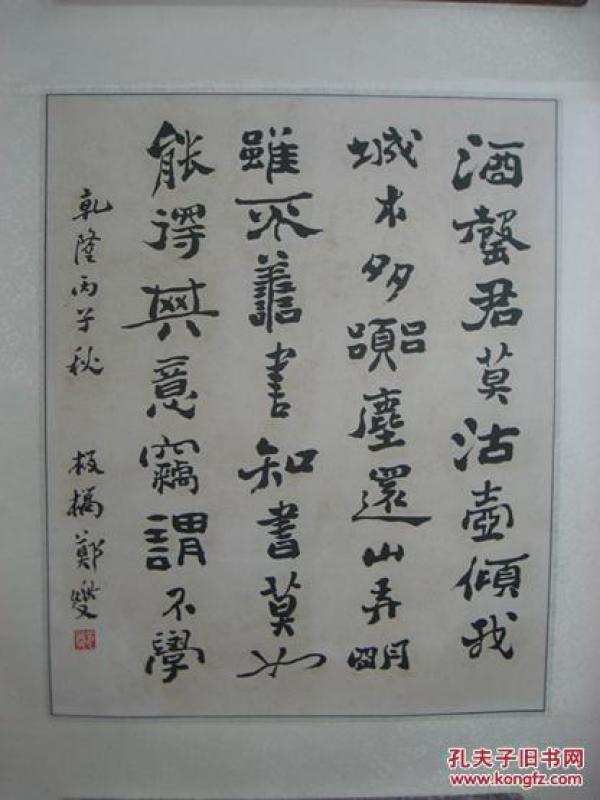 酒罄君莫沽壺傾我
城本多囂塵還山弄明
雖不善書知書莫如
能得其意竊謂不學
乾隆丙子秋 板橋鄭燮
孔夫子旧书网
www.kongfz.com